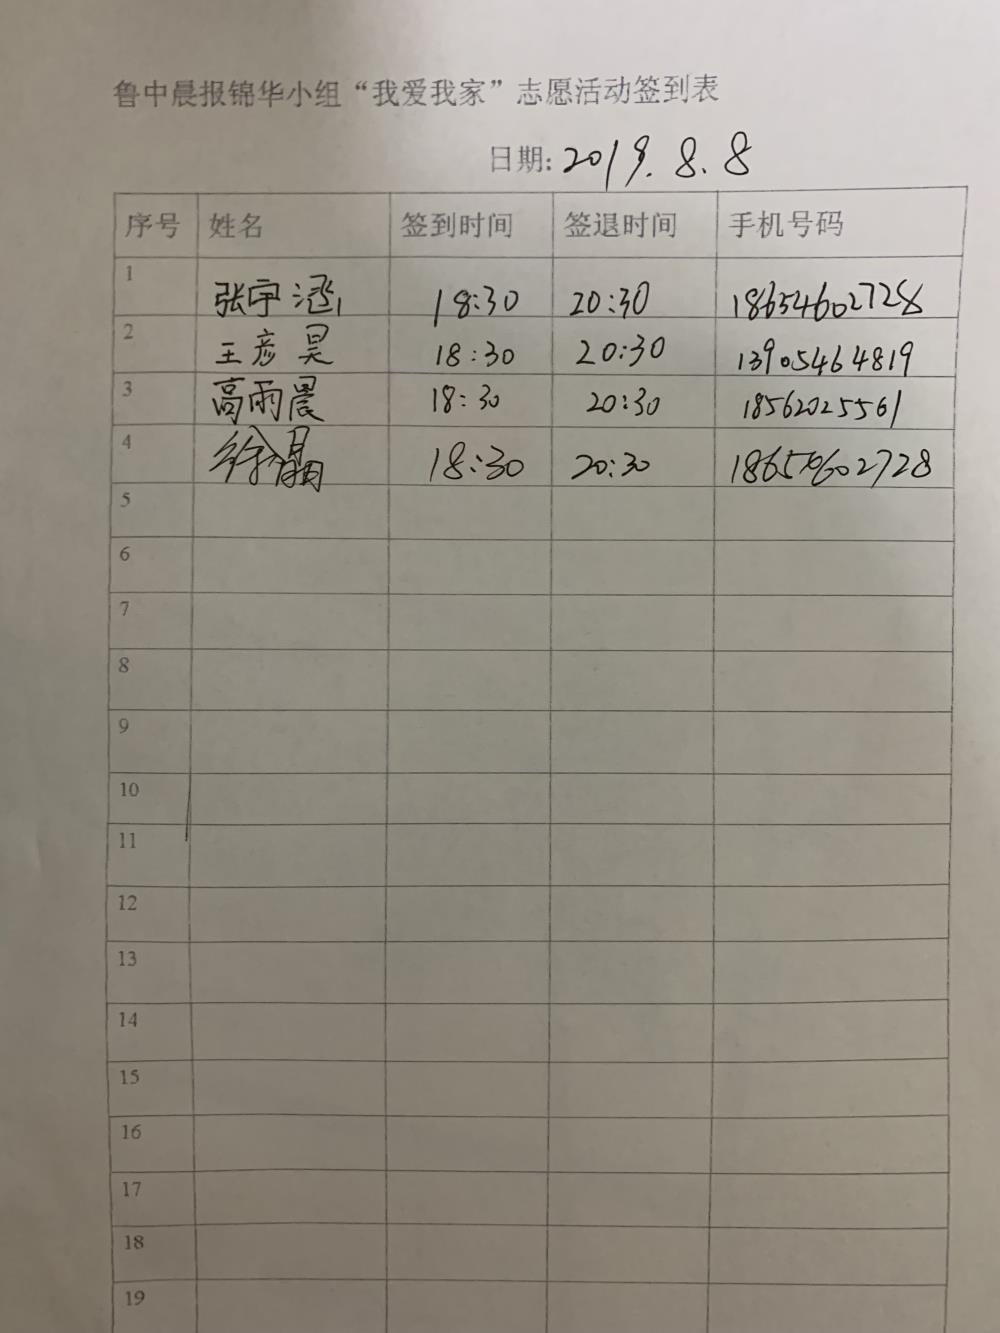 鲁中晨报锦华小组“我爱我家”志愿活动签到表
日期: 2019.8.8
序号 姓名 签到时间 签退时间 手机号码
1 张宇涵 18:30 20:30 18654602728
2 王彦昊 18:30 20:30 13905464819
3 高雨晨 18:30 20:30 18562025561
4 徐晶 18:30 20:30
5
6
7
8
9
10
11
12
13
14
15
16
17
18
19